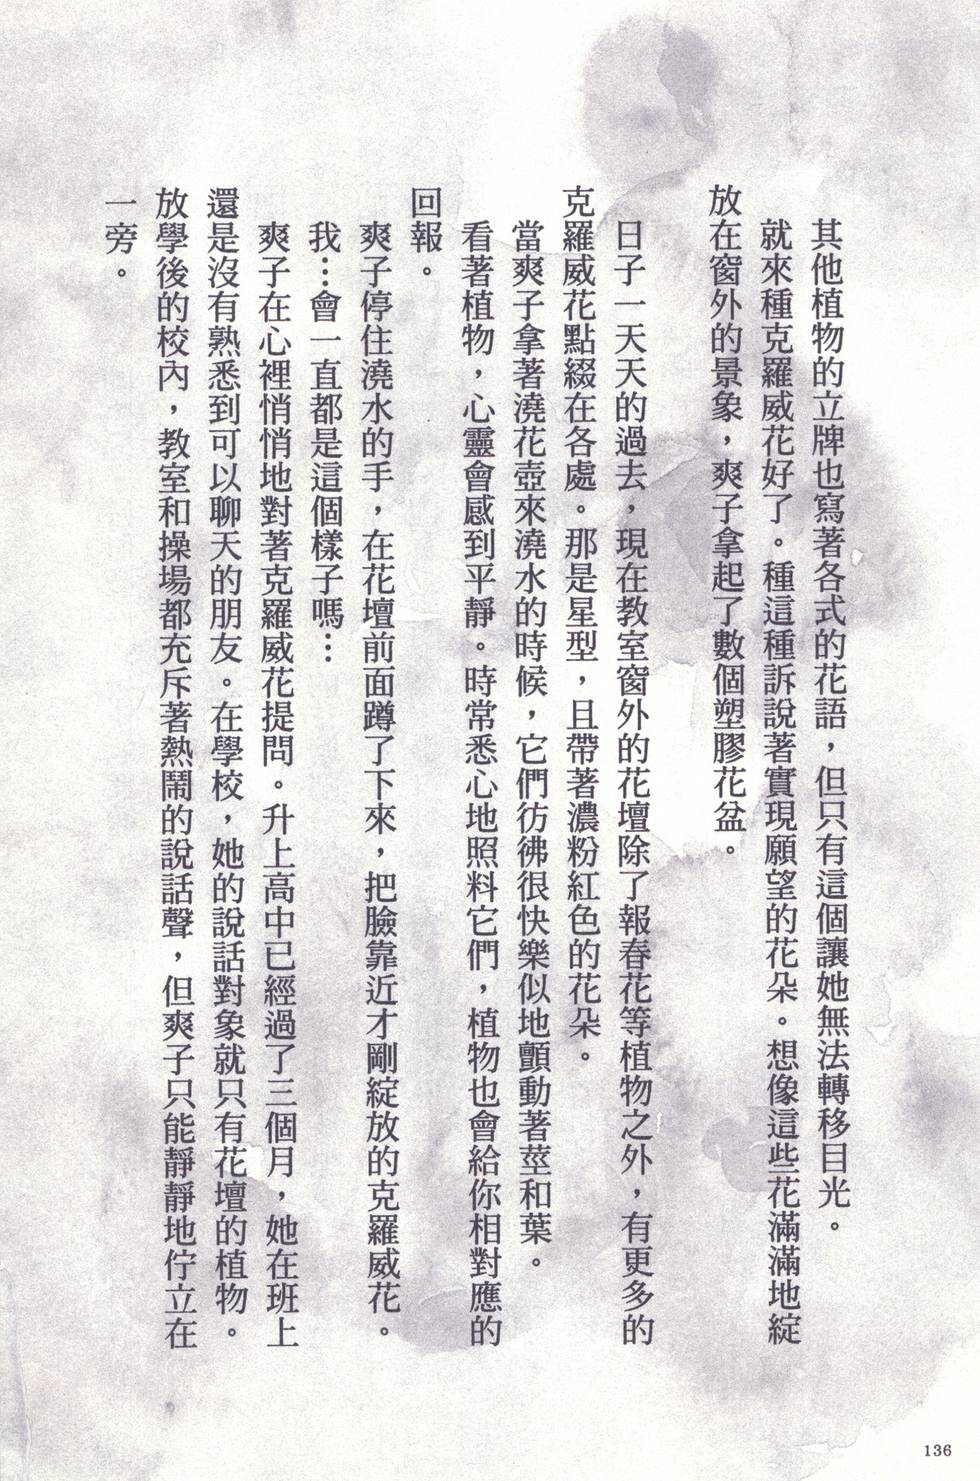 其他植物的立牌也寫著各式的花語，但只有這個讓她無法轉移目光。
就來種克羅威花好了。種這種訴說著實現願望的花朵。想像這些花滿滿地綻
放在窗外的景象，爽子拿起了數個塑膠花盆。
日子一天天的過去，現在教室窗外的花壇除了報春花等植物之外，有更多的
克羅威花點綴在各處。那是星型，且帶著濃粉紅色的花朵。
當爽子拿著澆花壺來澆水的時候，它們彷彿很快樂似地顫動著莖和葉。
看著植物，心靈會感到平靜。時常悉心地照料它們，植物也會給你相對應的
回報。
爽子停住澆水的手，在花壇前面蹲了下來，把臉靠近才剛綻放的克羅威花。
我…會一直都是這個樣子嗎…
爽子在心裡悄悄地對著克羅威花提問。升上高中已經過了三個月，她在班上
還是沒有熟悉到可以聊天的朋友。在學校，她的說話對象就只有花壇的植物。
放學後的校內，教室和操場都充斥著熱鬧的說話聲，但爽子只能靜靜地佇立在
一旁。
136